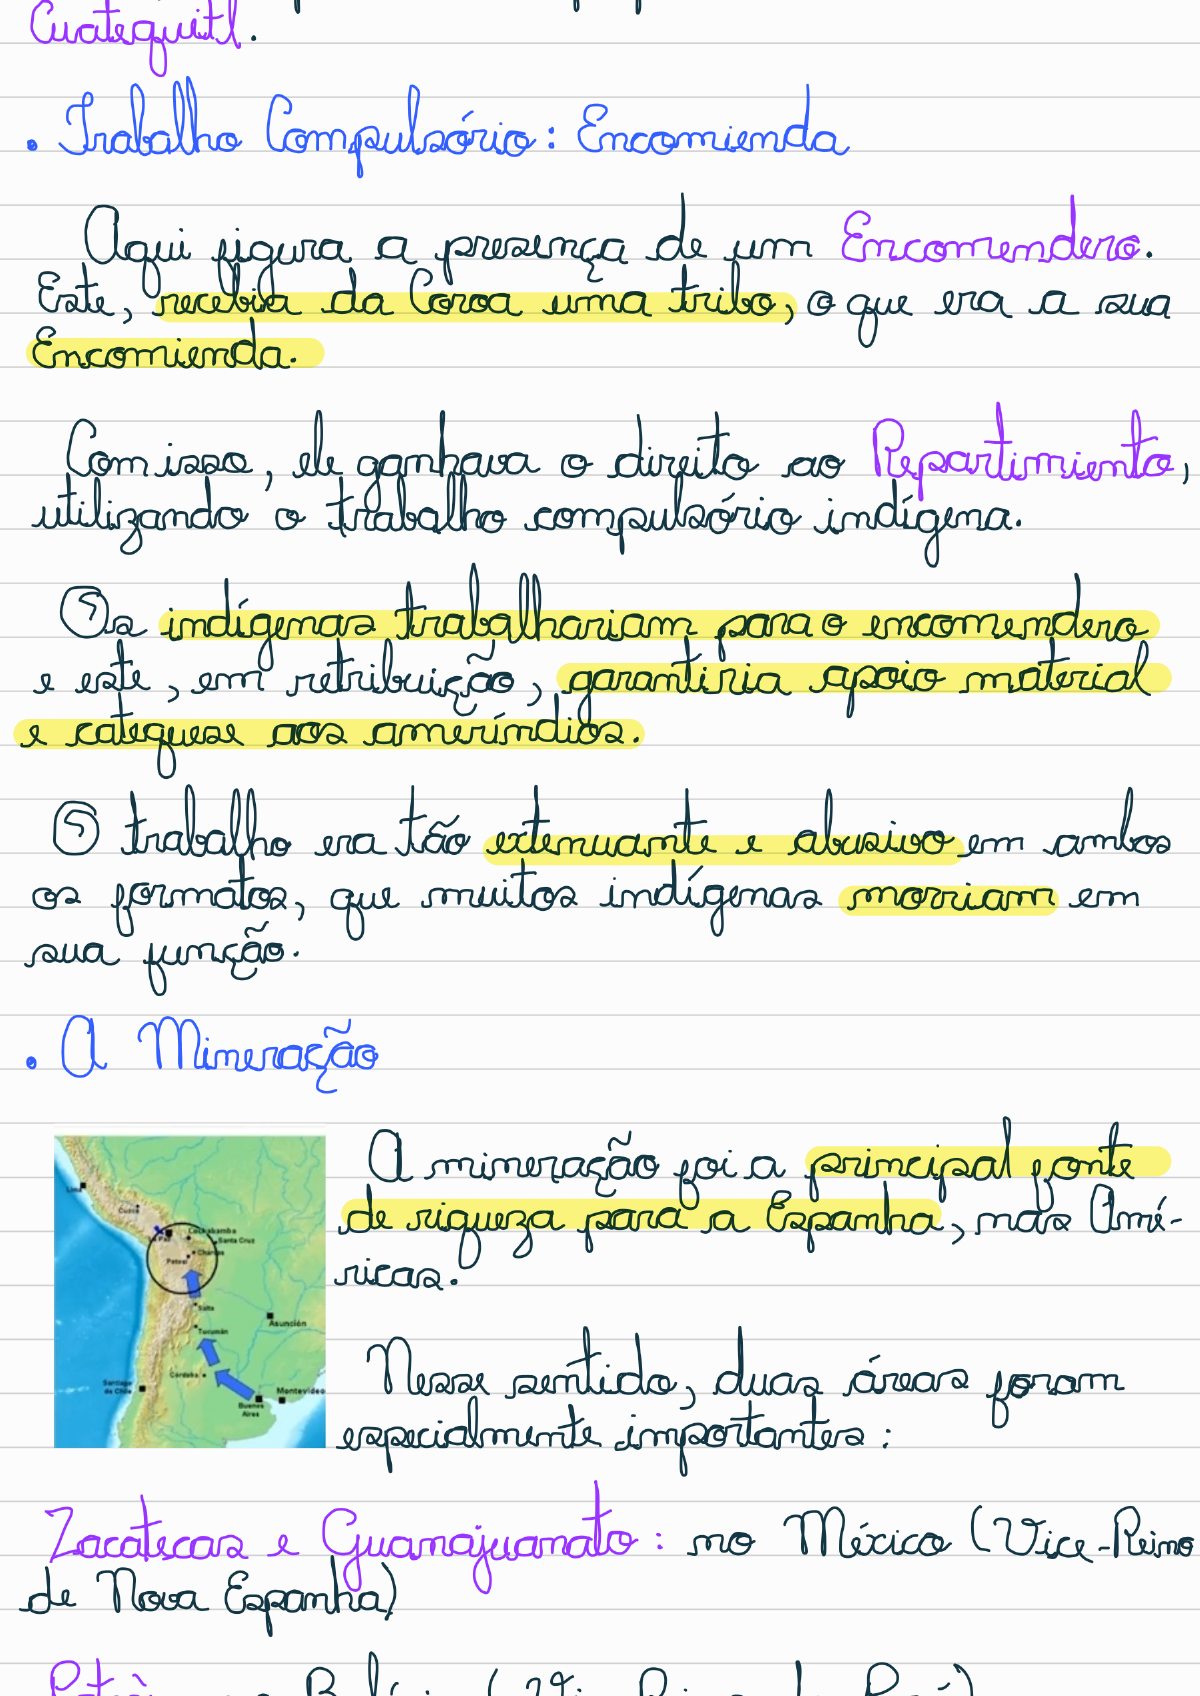 Cuatequitl.
• Trabalho Compulsório: Encomienda
Aqui figura a presença de um Encomendero.
Este, recebia da Coroa uma tribo, o que era a sua
Encomienda.
Com isso, ele ganhava o direito ao Repartimiento,
utilizando o trabalho compulsório indígena.
Os indígenas trabalhariam para o encomendero
e este, em retribuição, garantiria apoio material
e catequese aos ameríndios.
O trabalho era tão extenuante e abusivo em ambos
os formatos, que muitos indígenas morriam em
sua função.
• A Mineração
A mineração foi a principal fonte
de riqueza para a Espanha, mas Amé-
ricas.
Nesse sentido, duas áreas foram
especialmente importantes:
Lima
Cuzco
La Paz
Cochabamba
Santa Cruz
Charcas
Potosí
Salta
Tucumán
Asunción
Córdoba
Santiago
de Chile
Buenos
Aires
Montevideo
Zacatecas e Guanajuanato: no México (Vice-Reino
de Nova Espanha)